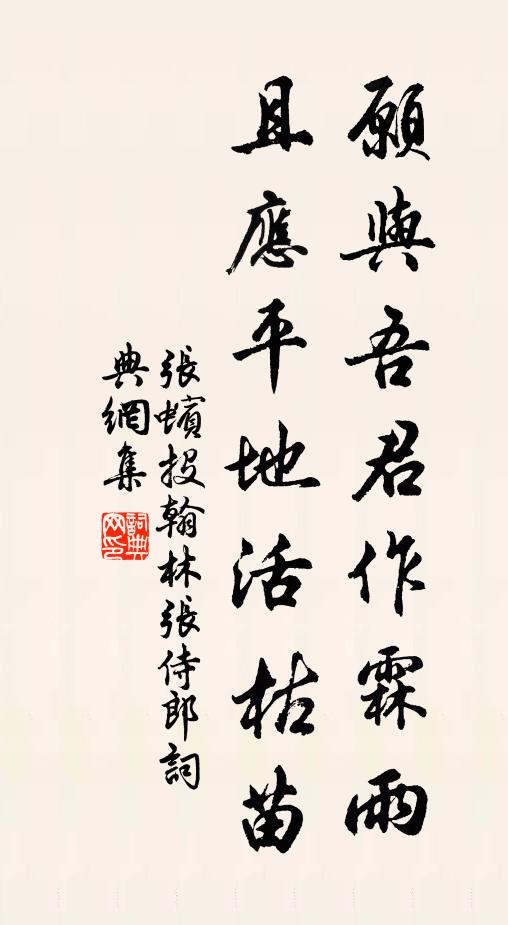 願與吾君作霖雨
且應平地活枯苗
張蠙投翰林張侍郎詞
典網集
詞典
网印